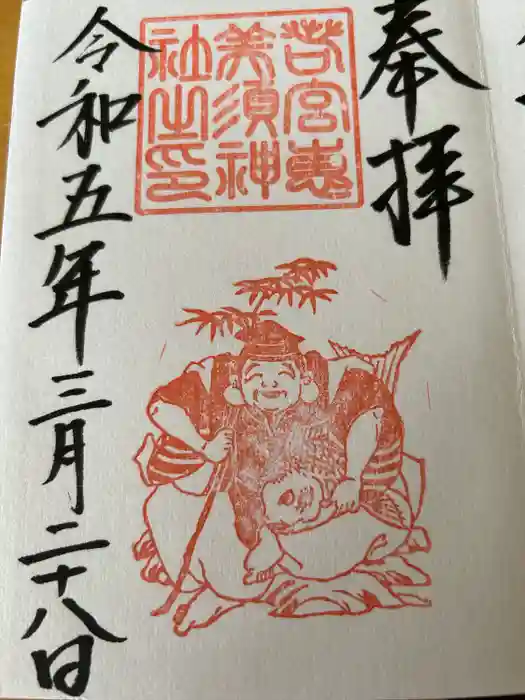 奉拝
若宮恵
美須神
社之印
令和五年三月二十八日